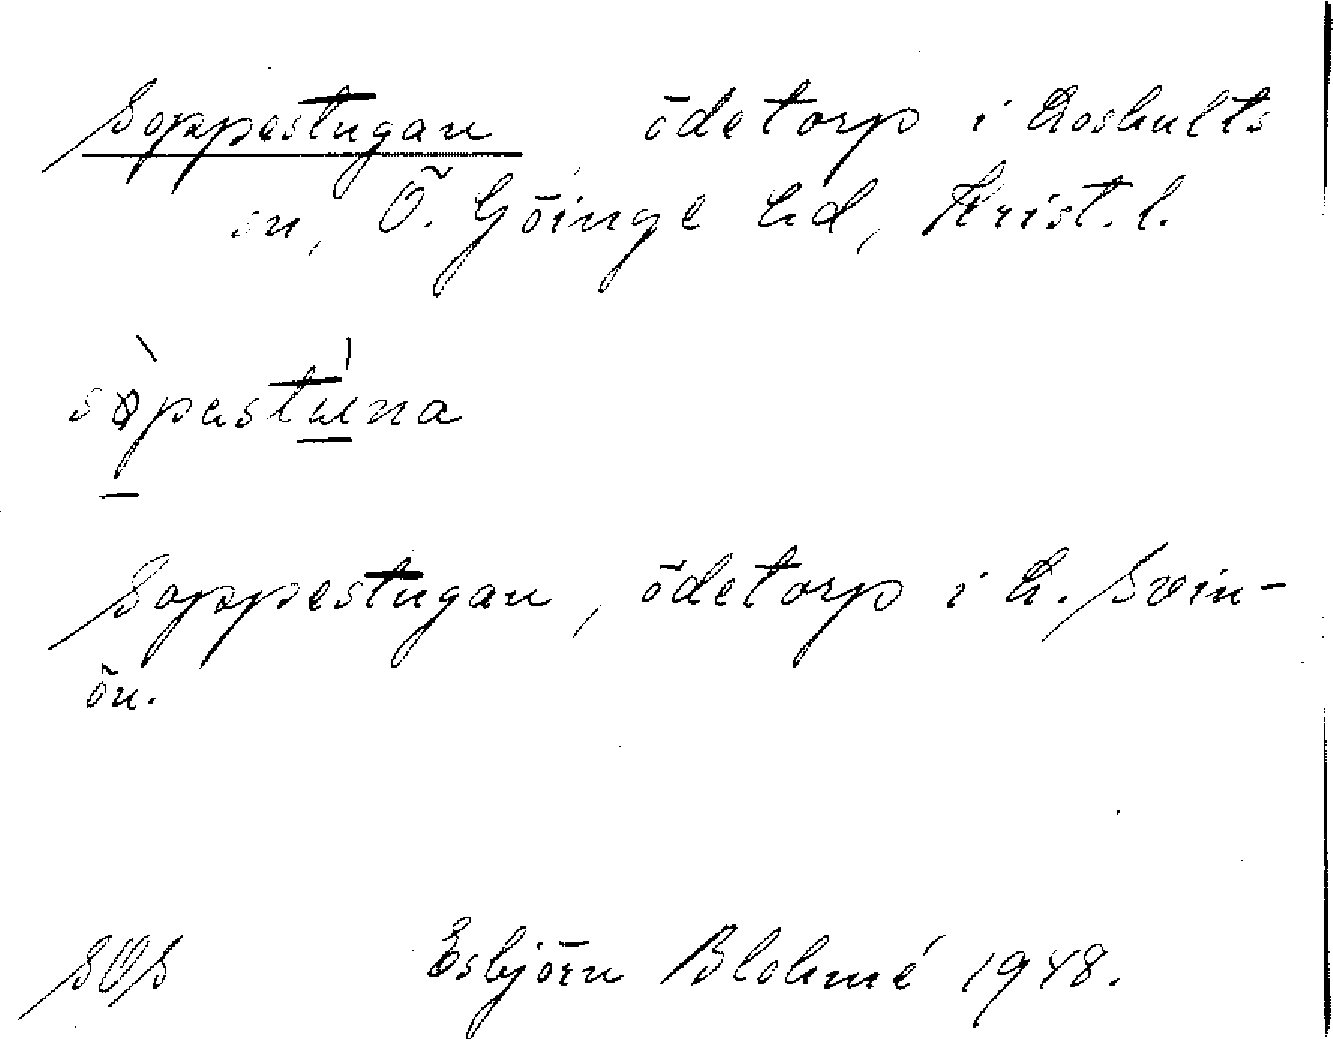 Soppestugan ödetorp i Loshults
sn, Ö. Göinge hd, Krist. l.
sòpastúna
Soppestugan, ödetorp i L. Svin-
ön.
SOS Esbjörn Blohmé 1948.